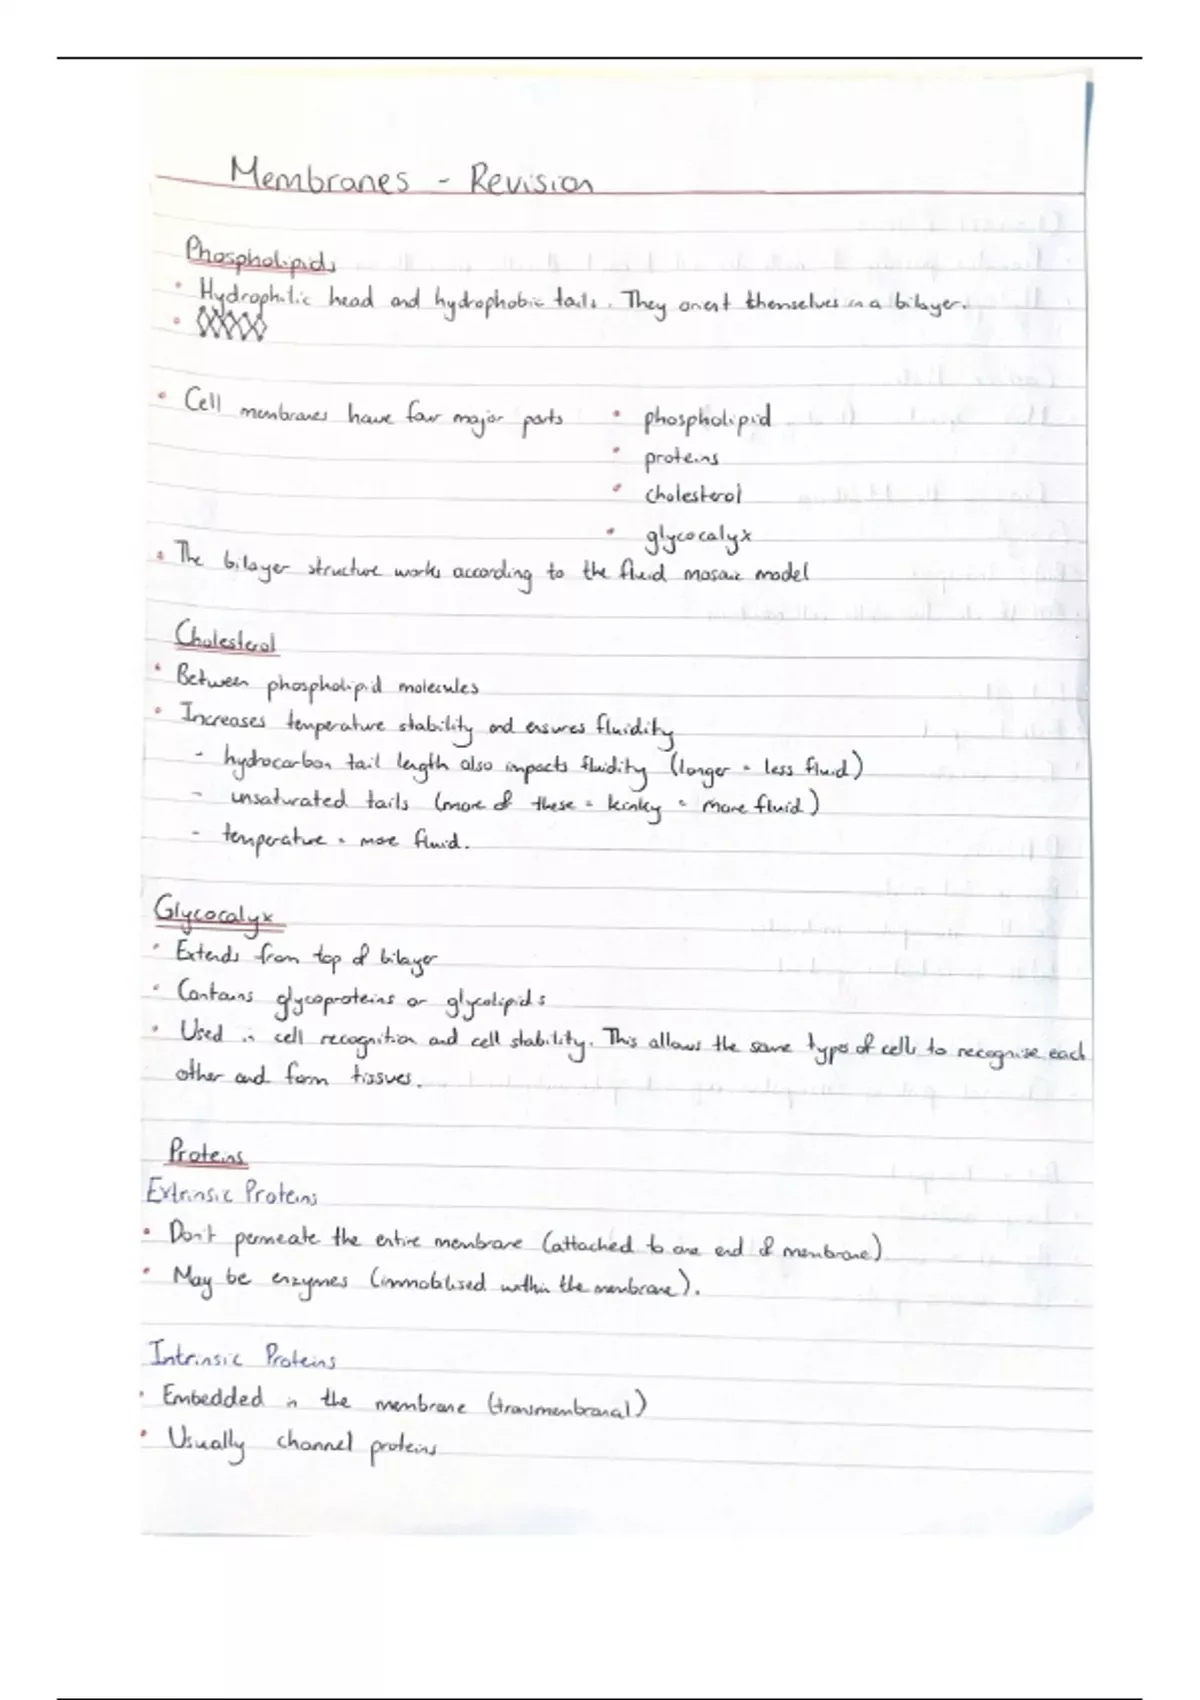 Membranes - Revision
Phospholipids
• Hydrophilic head and hydrophobic tails. They orient themselves in a bilayer.
• Cell membranes have four major parts • phospholipid
• proteins
• cholesterol
• glycocalyx
• The bilayer structure works according to the fluid mosaic model
Cholesterol
• Between phospholipid molecules
• Increases temperature stability and ensures fluidity
- hydrocarbon tail length also impacts fluidity (longer = less fluid)
- unsaturated tails (more of these = kinky = more fluid)
- temperature = more fluid.
Glycocalyx
• Extends from top of bilayer
• Contains glycoproteins or glycolipids
• Used in cell recognition and cell stability. This allows the same types of cells to recognise each
other and form tissues.
Proteins
Extrinsic Proteins
• Don't permeate the entire membrane (attached to one end of membrane)
• May be enzymes (immobilised within the membrane).
Intrinsic Proteins
• Embedded in the membrane (transmembranal)
• Usually channel proteins